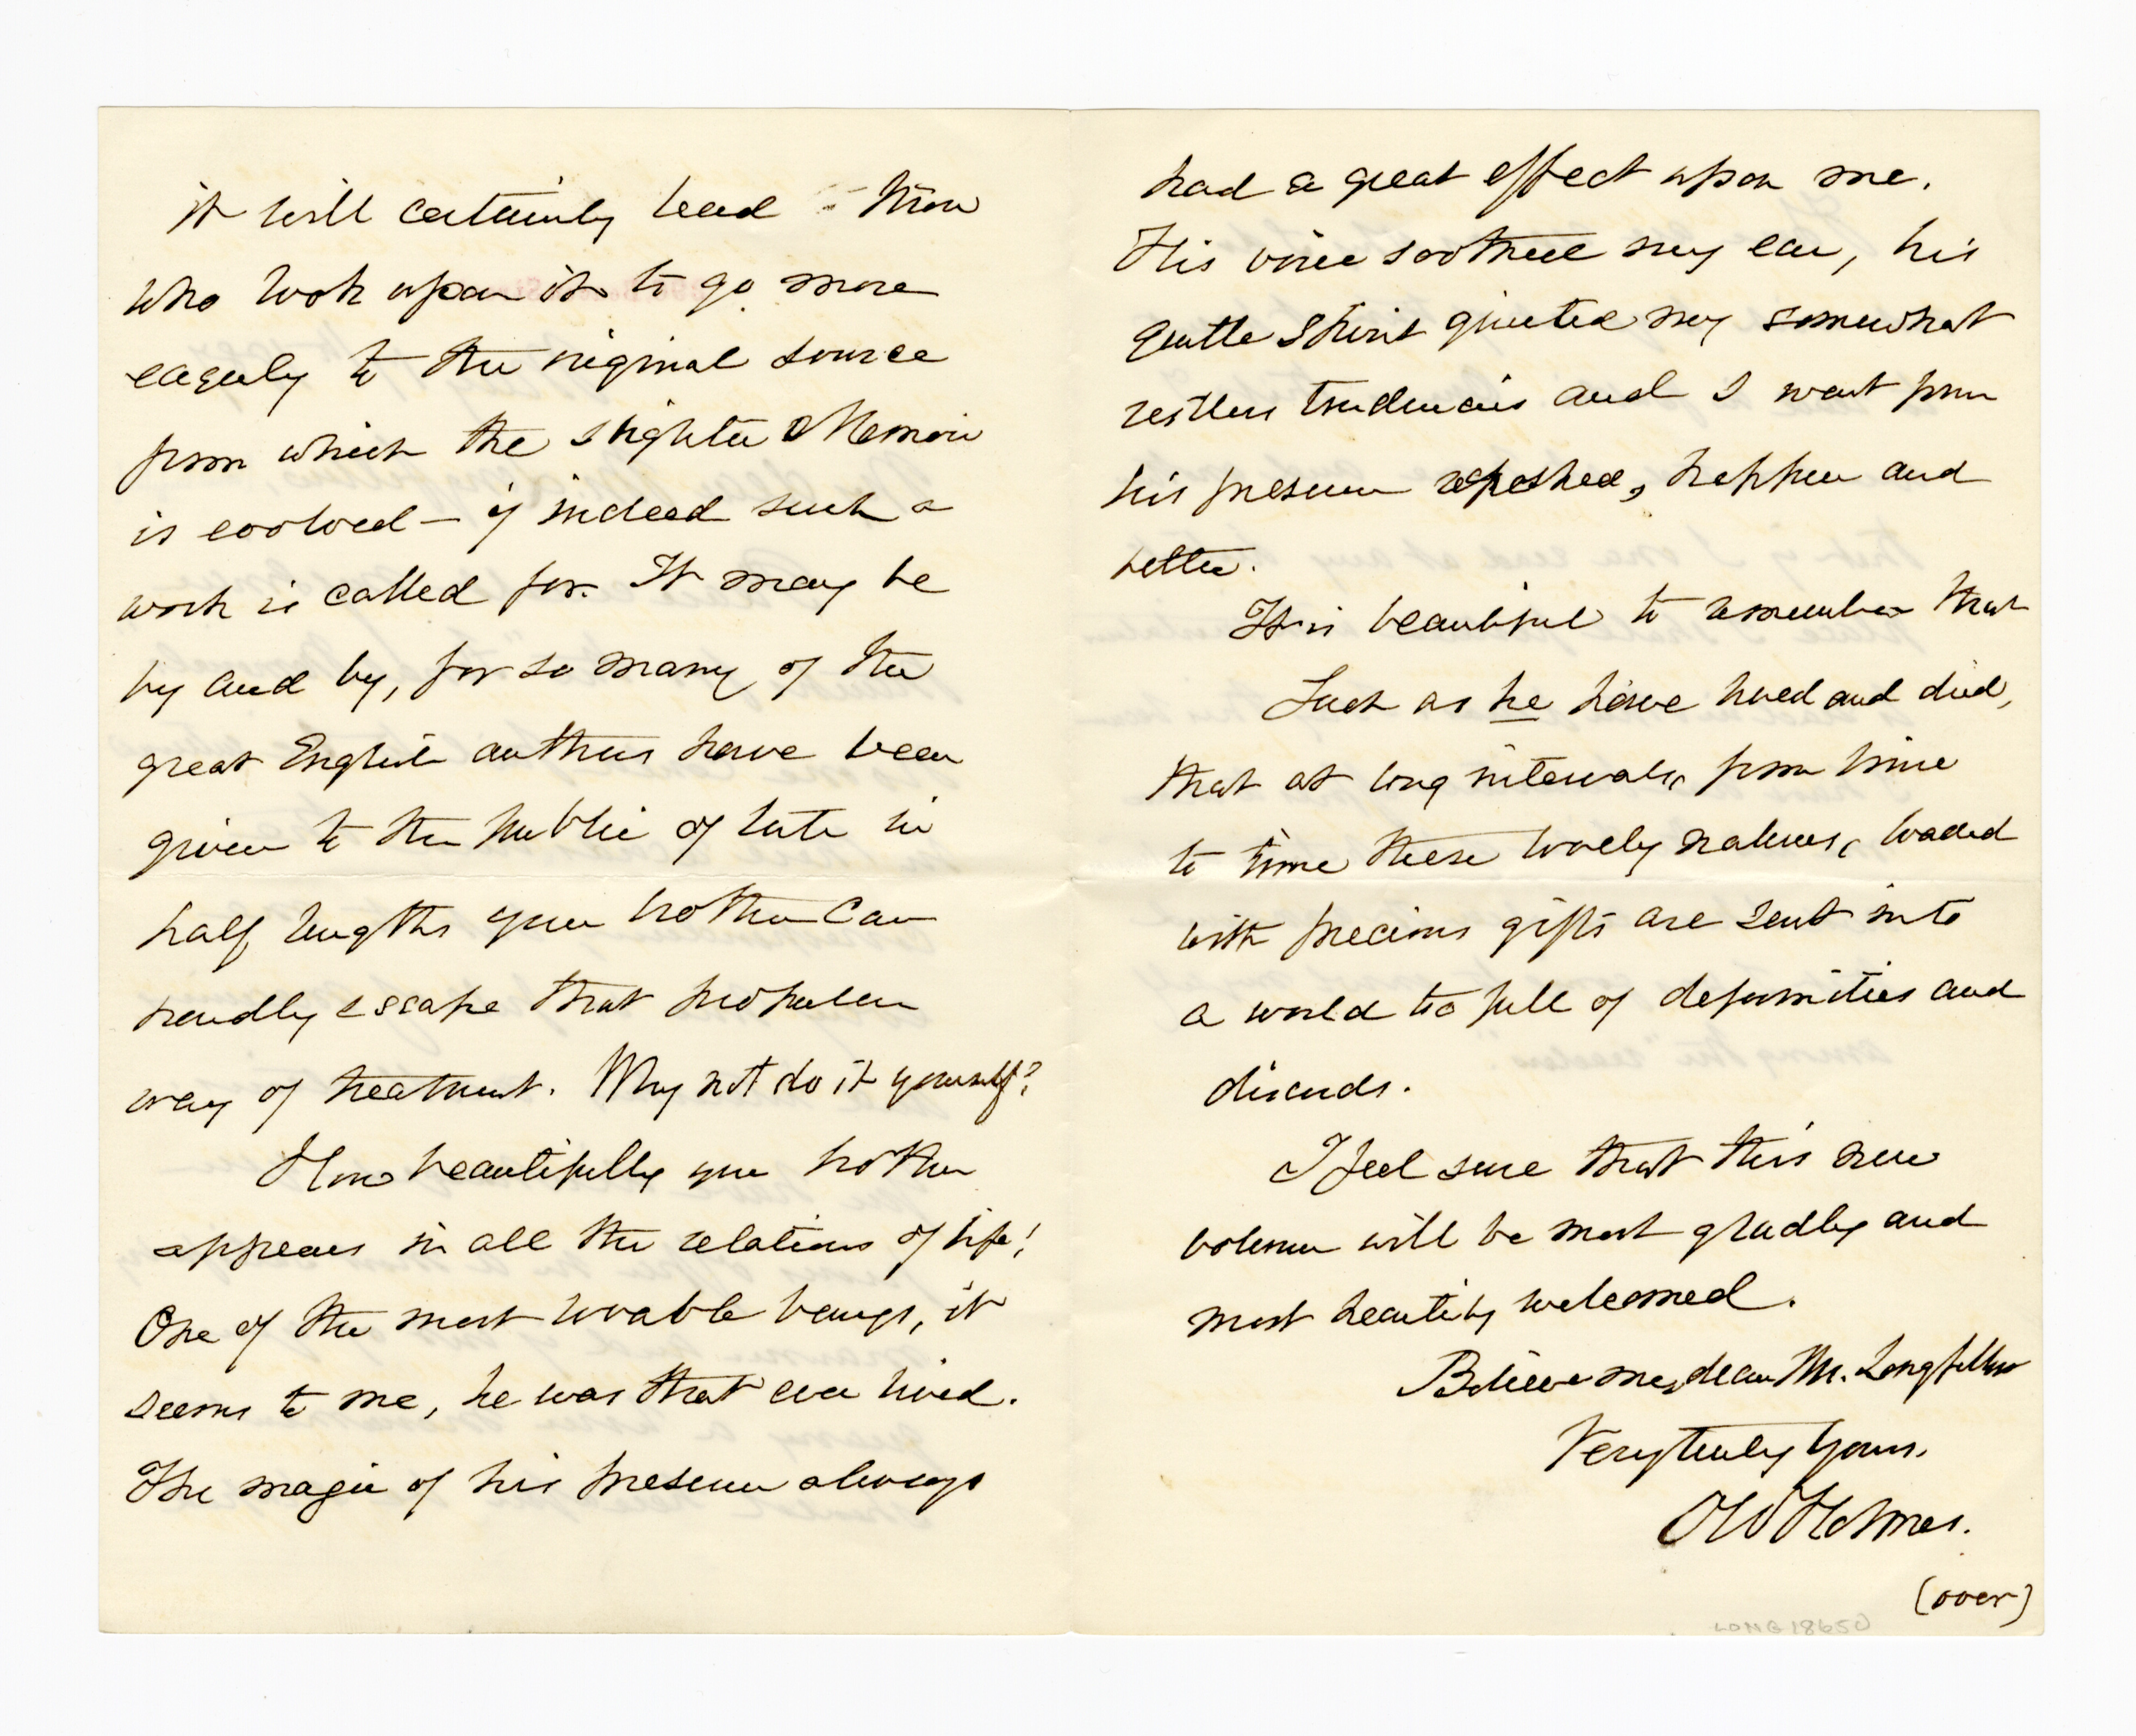 it will certainly lead those
who look upon it to go more
eagerly to the original source
from which the slighter Memoir
is evolved — if indeed such a
work is called for. It may be
by and by, for so many of the
great English authors have been
given to the public of late in
half lengths your brother can
hardly escape that popular
way of treatment. Why not do it yourself?
How beautifully your brother
appears in all the relations of life!
One of the most lovable beings, it
seems to me, he was that ever lived.
The magic of his presence always
had a great effect upon me.
His voice soothed my ear, his
gentle spirit quieted my somewhat
restless tendencies and I went from
his presence refreshed, happier and
better.
It is beautiful to remember that
Such as he have lived and died,
that at long intervals, from time
to time these lovely natures, loaded
with precious gifts are sent into
a world too full of deformities and
discords.
I feel sure that this new
volume will be most gladly and
most heartily welcomed.
Believe me, dear Mr. Longfellow
Very truly Yours,
O W Holmes.
(over)
LONG 18650